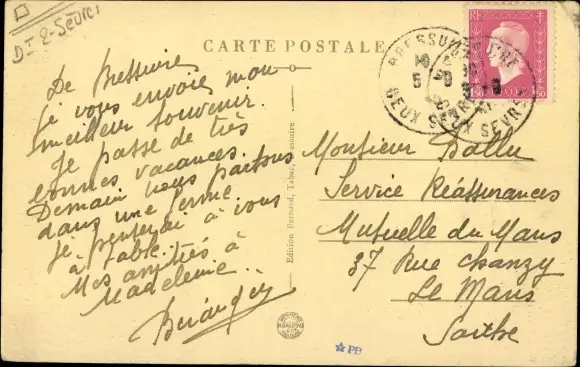 Dt 2-Sèvres
CARTE POSTALE
De Bressuire
je vous envoie mon
meilleur souvenir.
Je passe de très
bonnes vacances.
Demain nous partons
dans une ferme
je penserai à vous
à table.
Mes amitiés à
Madeleine.
Edition Bernard, Tabac, Bressuire
BRESSUIRE
DEUX SEVRES
RF
Monsieur
Service Réassurances
Mutuelle du Mans
37 Rue Chanzy
Le Mans
Sarthe
PB